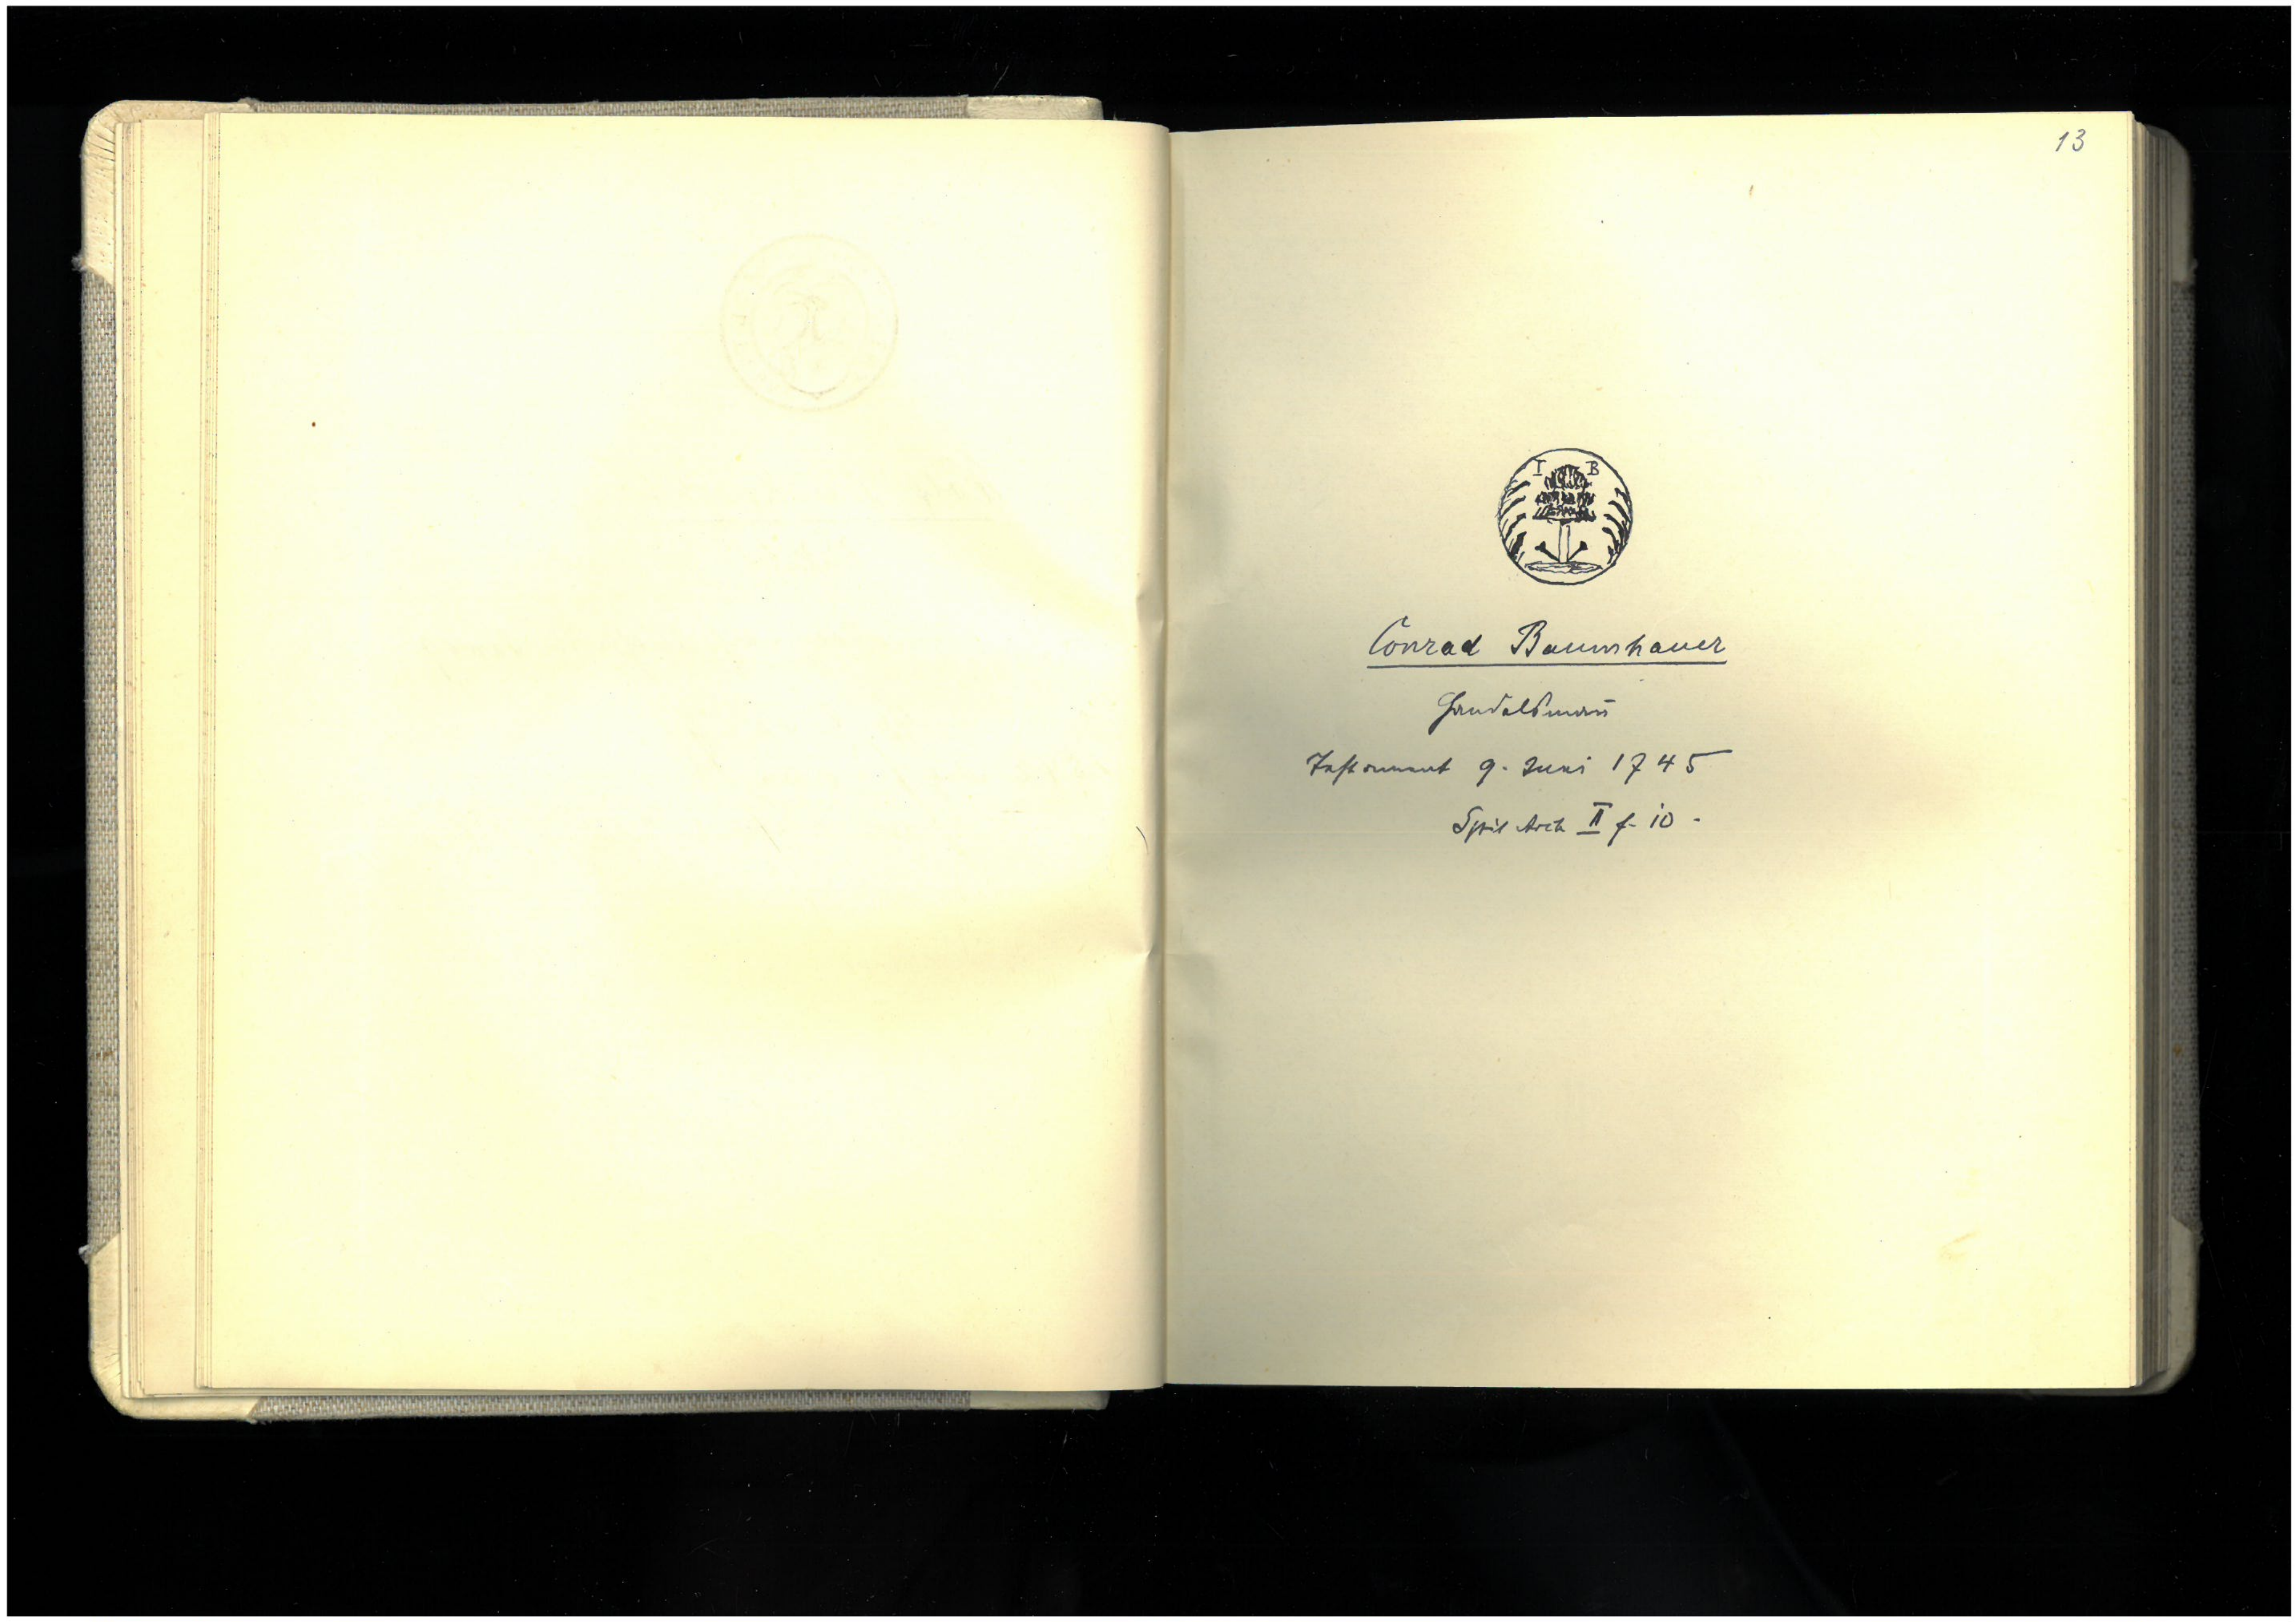 13
I B
Conrad Baumhauer
Handelsmañ
Testament 9. Juni 1745
Spit Arch II f. 10 -